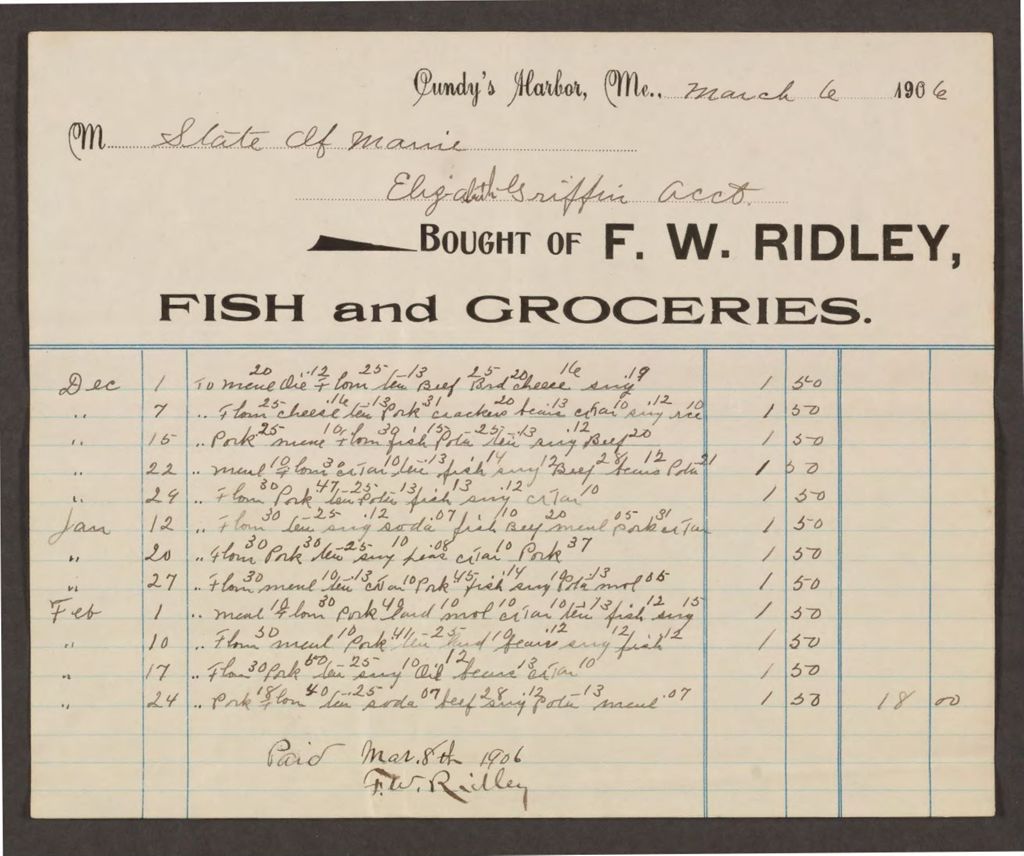 Cundy's Harbor, Me., March 6 1906
M State Of Maine
Elizabeth Griffin Acct.
BOUGHT OF F. W. RIDLEY,
FISH and GROCERIES.
Dec 1 To meal 20 Oil 12 Flour 25 tea 13 Beef 25 Brd 20 cheese 16 sug 19 1 50
" 7 " Flour 25 cheese 16 tea 13 Pork 31 crackers 20 beans 13 crtar 10 sug 12 rice 10 1 50
" 15 " Pork 25 meal 10 Flour 30 fish 15 Pota 25 tea 13 sug 12 Beef 20 1 50
" 22 " meal 10 Flour 30 crTar 10 tea 13 fish 14 sug 12 Beef 28 beans 12 Pota 21 1 50
" 29 " Flour 30 Pork 47 tea 25 Pota 13 fish 13 sug 12 crTar 10 1 50
Jan 12 " Flour 30 tea 25 sug 12 soda 07 fish 10 Beef 20 meal 05 Pork 31 crTar 1 50
" 20 " Flour 30 Pork 30 tea 25 sug 10 peas 08 crtar 10 Pork 37 1 50
" 27 " Flour 30 meal 10 tea 13 crtar 10 Pork 45 fish 14 sug 10 Pota 13 mol 05 1 50
Feb 1 " meal 10 Flour 30 Pork 40 Lard 10 mol 10 crTar 10 tea 13 fish 12 sug 15 1 50
" 10 " Flour 30 meal 10 Pork 41 tea 25 lard 10 beans 12 sug 12 fish 12 1 50
" 17 " Flour 30 Pork 50 tea 25 sug 10 Oil 12 beans 13 crTar 10 1 50
" 24 " Pork 18 Flour 40 tea 25 soda 07 beef 28 sug 12 Pota 13 meal 07 1 50 18 00
Paid Mar. 8th 1906
F.W. Ridley